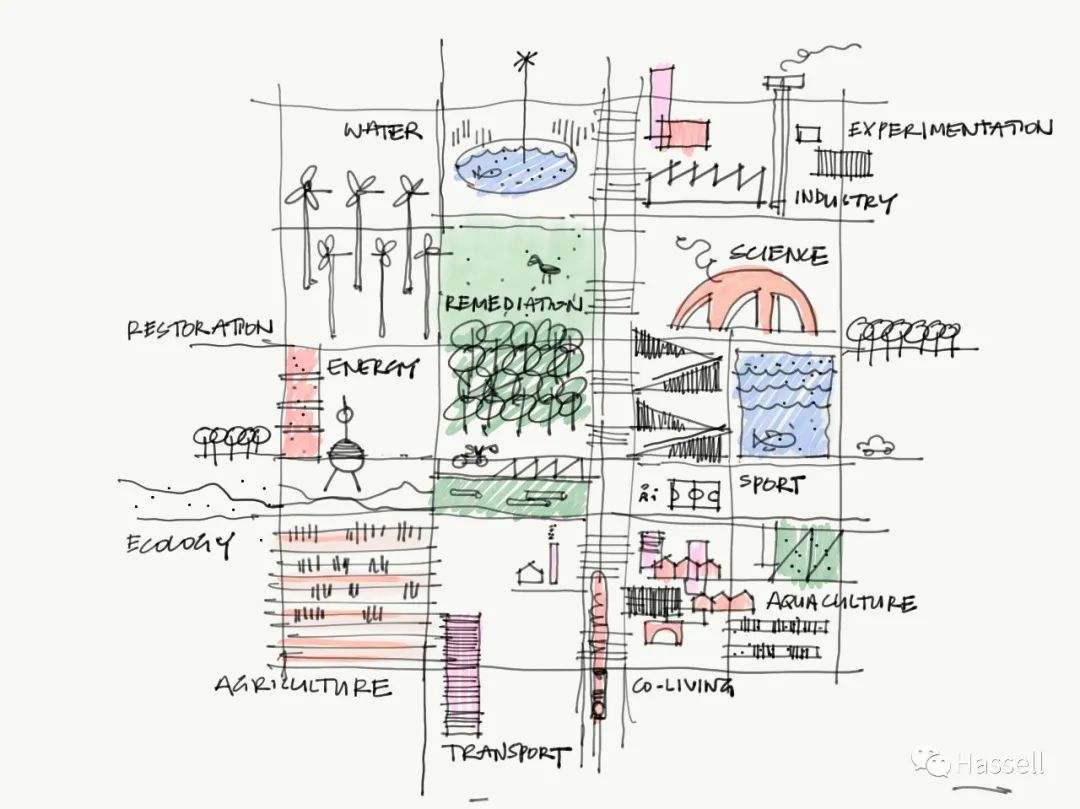 WATER
EXPERIMENTATION
INDUSTRY
SCIENCE
REMEDIATION
RESTORATION
ENERGY
SPORT
ECOLOGY
AQUACULTURE
AGRICULTURE
CO-LIVING
TRANSPORT
Hassell